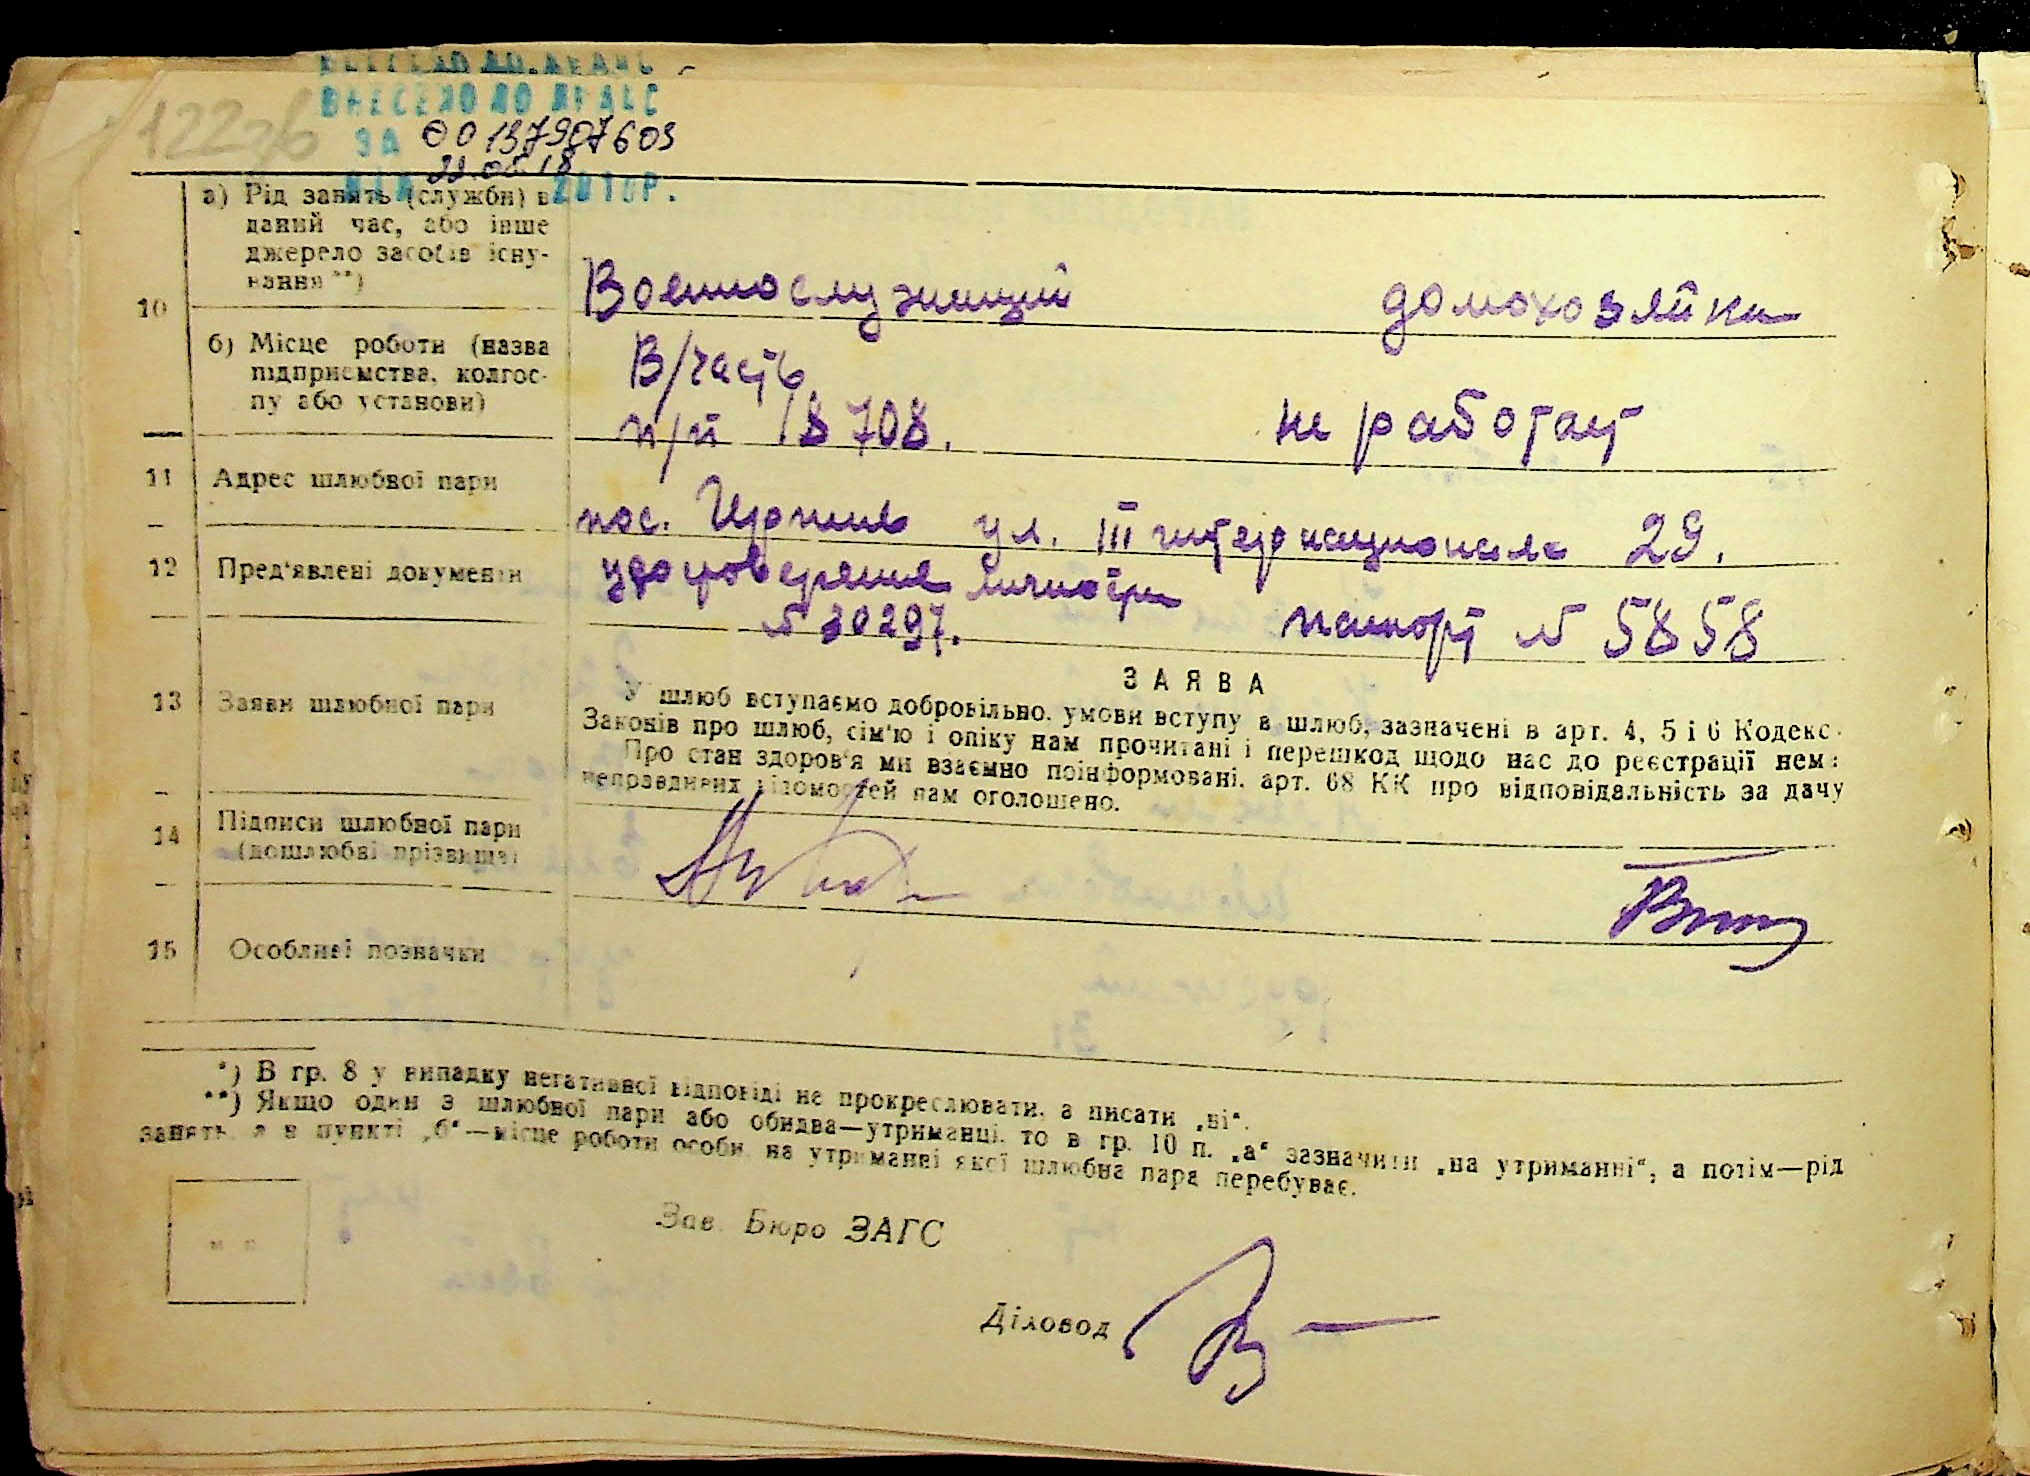 122зв
ВНЕСЕНО ДО ДРАЦС
ЗА 00137907603
22.06.18 201 р.
10
а) Рід занять (служби) в
даний час, або інше
джерело засобів існу-
вання **)
Военнослужащий домохозяйка
б) Місце роботи (назва
підприємства, колгос-
пу або установи)
В/часть
п/п 18708. не работает
11 Адрес шлюбної пари
пос. ул. III интернационала 29.
12 Пред'явлені документи
удостоверение личности
№ 30297. паспорт № 5858
13 Заяви шлюбної пари
ЗАЯВА
У шлюб вступаємо добровільно. умови вступу в шлюб, зазначені в арт. 4, 5 і 6 Кодекс
Законів про шлюб, сім'ю і опіку нам прочитані і перешкод щодо нас до реєстрації нема
Про стан здоров'я ми взаємно поінформовані. арт. 68 КК про відповідальність за дачу
неправдивих відомостей нам оголошено.
14 Підписи шлюбної пари
(дошлюбні прізвища)
15 Особливі позначки
*) В гр. 8 у випадку негативної відповіді не прокреслювати, а писати „ні“.
**) Якщо один з шлюбної пари або обидва—утриманці, то в гр. 10 п. „а“ зазначити „на утриманні“, а потім—рід
занять, а в пункті „б“—місце роботи особи, на утриманні якої шлюбна пара перебуває.
м п
Зав. Бюро ЗАГС
Діловод